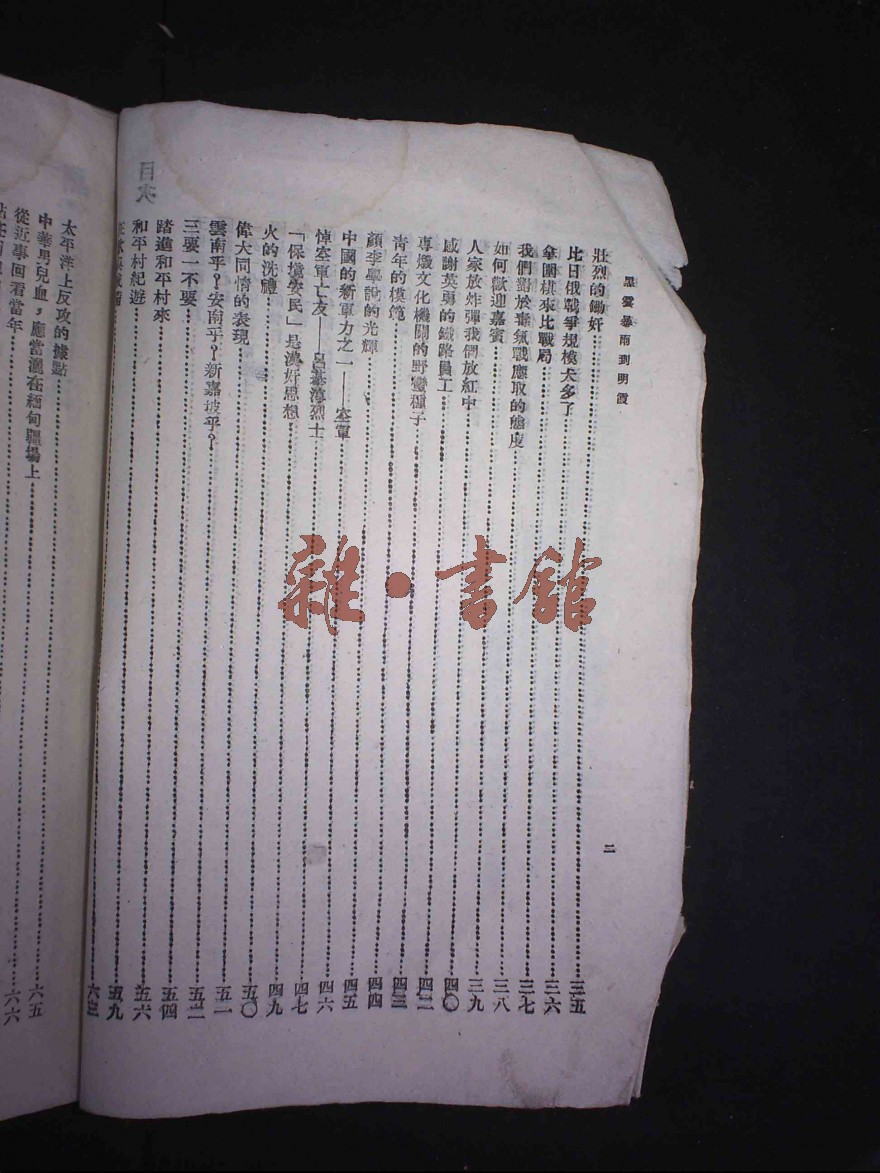 黑雲暴雨到明霞
二
壯烈的鋤奸……三五
比日俄戰爭規模大多了……三六
拿圍棋來比戰局……三七
我們對於毒氣戰應取的態度……三八
如何歡迎嘉賓……三九
人家放炸彈我們放紅中……四〇
感謝英勇的鐵路員工……四二
專燬文化機關的野蠻種子……四三
青年的模範……四四
顏李學說的光輝……四五
中國的新軍力之一——空軍……四六
悼空軍亡友——呂基淳烈士……四七
「保境安民」是漢奸思想……四九
火的洗禮……五〇
偉大同情的表現……五一
雲南乎？安南乎？新嘉坡乎？……五二
三要一不要……五四
踏進和平村來……五六
和平村紀遊……五九
……六三
太平洋上反攻的據點
中華男兒血，應當灑在緬甸疆場上……六五
從近事回看當年……六六
雜·書館